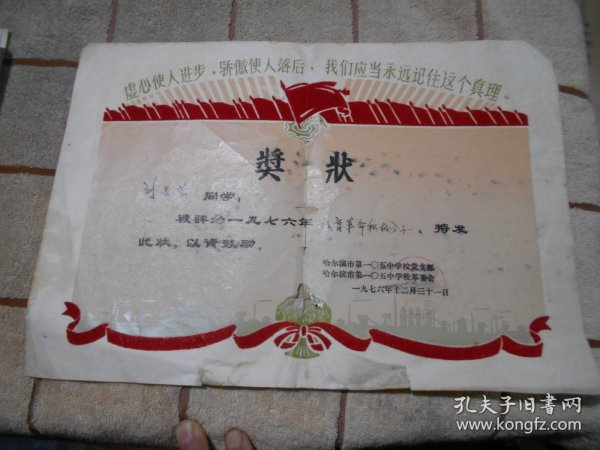 虚心使人进步，骄傲使人落后，我们应当永远记住这个真理。
奖状
刘 同学：
被评为一九七六年教育革命积极分子。特发
此状，以资鼓励。
哈尔滨市第一〇五中学校党支部
哈尔滨市第一〇五中学校革委会
一九七六年十二月三十一日
孔夫子旧书网
www.kongfz.com